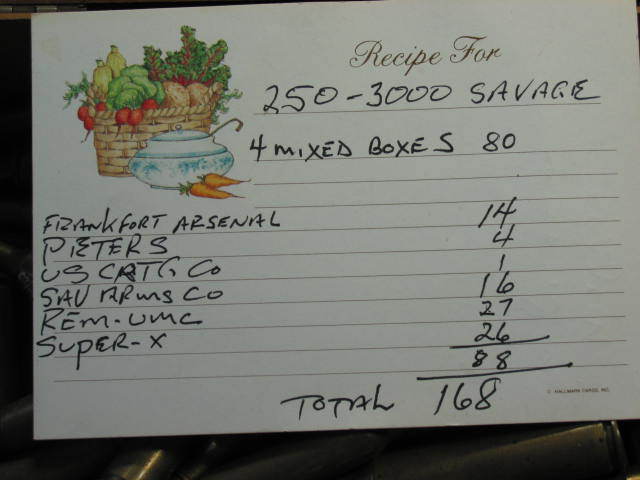 Recipe For
250-3000 SAVAGE
4 MIXED BOXES 80
FRANKFORT ARSENAL 14
PETERS 4
US CRTG CO 1
SAV ARMS CO 16
REM-UMC 27
SUPER-X 26
88
TOTAL 168
© HALLMARK CARDS, INC.